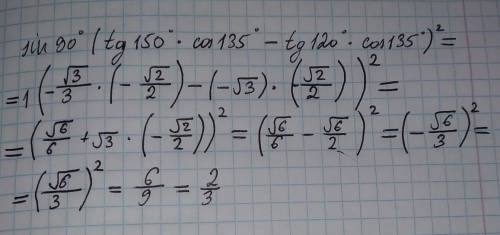 sin 90° (tg 150° · cos 135° − tg 120° · cos 135°)² =
= 1 (−√3/3 · (−√2/2) − (−√3) · (−√2/2))² =
= (√6/6 + √3 · (−√2/2))² = (√6/6 − √6/2)² = (−√6/3)² =
= (√6/3)² = 6/9 = 2/3